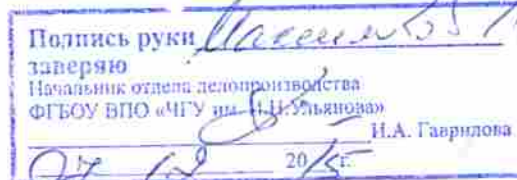 Подпись руки
заверяю
Начальник отдела делопроизводства
ФГБОУ ВПО «ЧГУ им. И.Н.Ульянова»
И.А. Гаврилова
07 12 2015г.